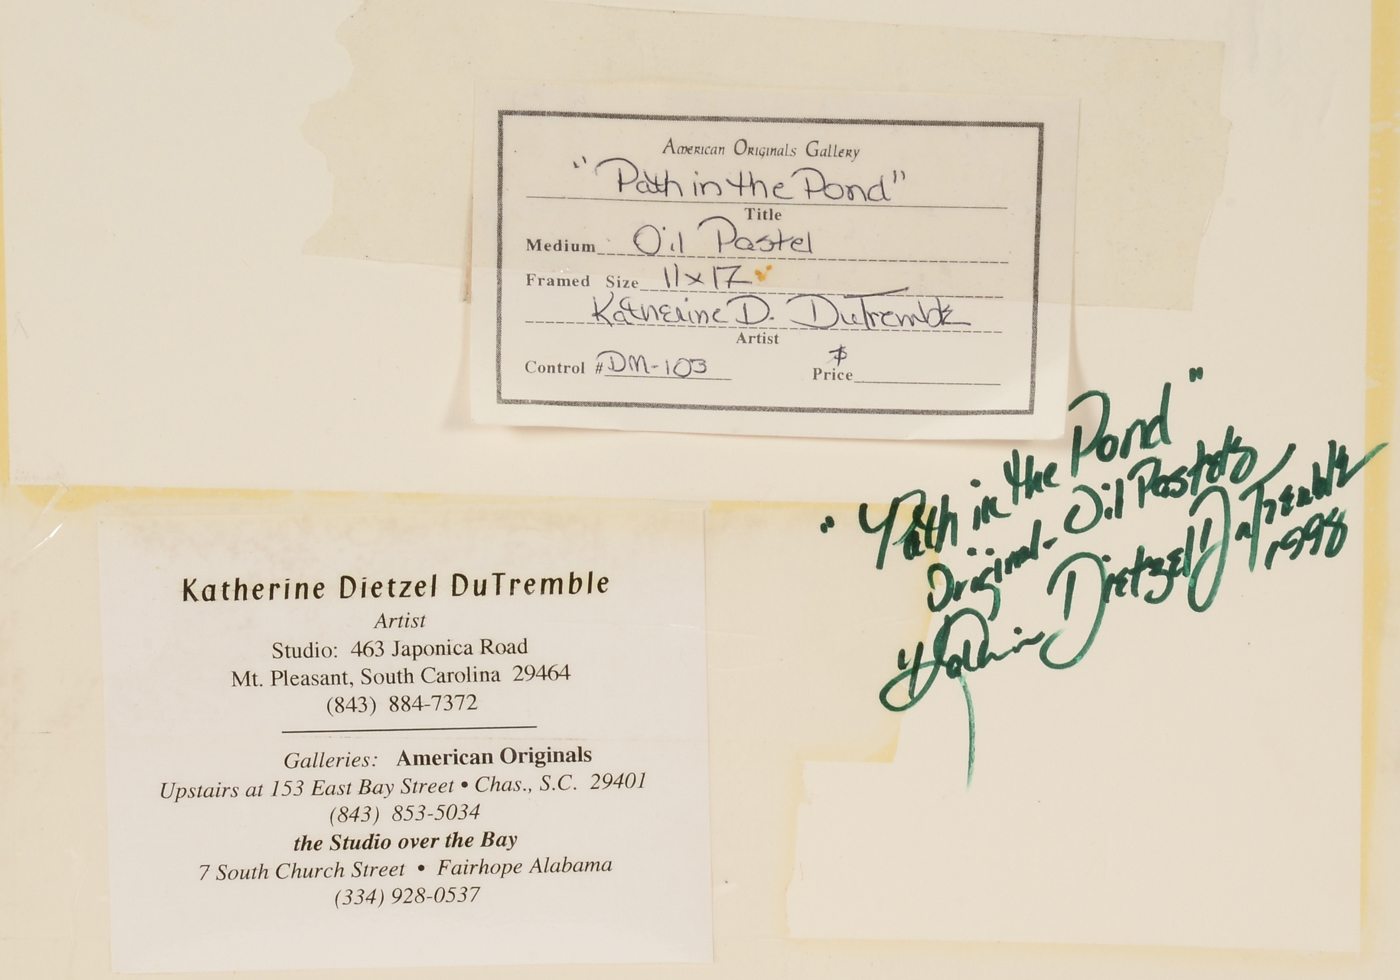 American Originals Gallery
"Path in the Pond"
Title
Medium Oil Pastel
Framed Size 11x17
Katherine D. DuTremble
Artist
Control # DM-103 Price $
"Path in the Pond"
Original - Oil Pastels
Katherine Dietzel DuTremble
1998
Katherine Dietzel DuTremble
Artist
Studio: 463 Japonica Road
Mt. Pleasant, South Carolina 29464
(843) 884-7372
Galleries: American Originals
Upstairs at 153 East Bay Street • Chas., S.C. 29401
(843) 853-5034
the Studio over the Bay
7 South Church Street • Fairhope Alabama
(334) 928-0537